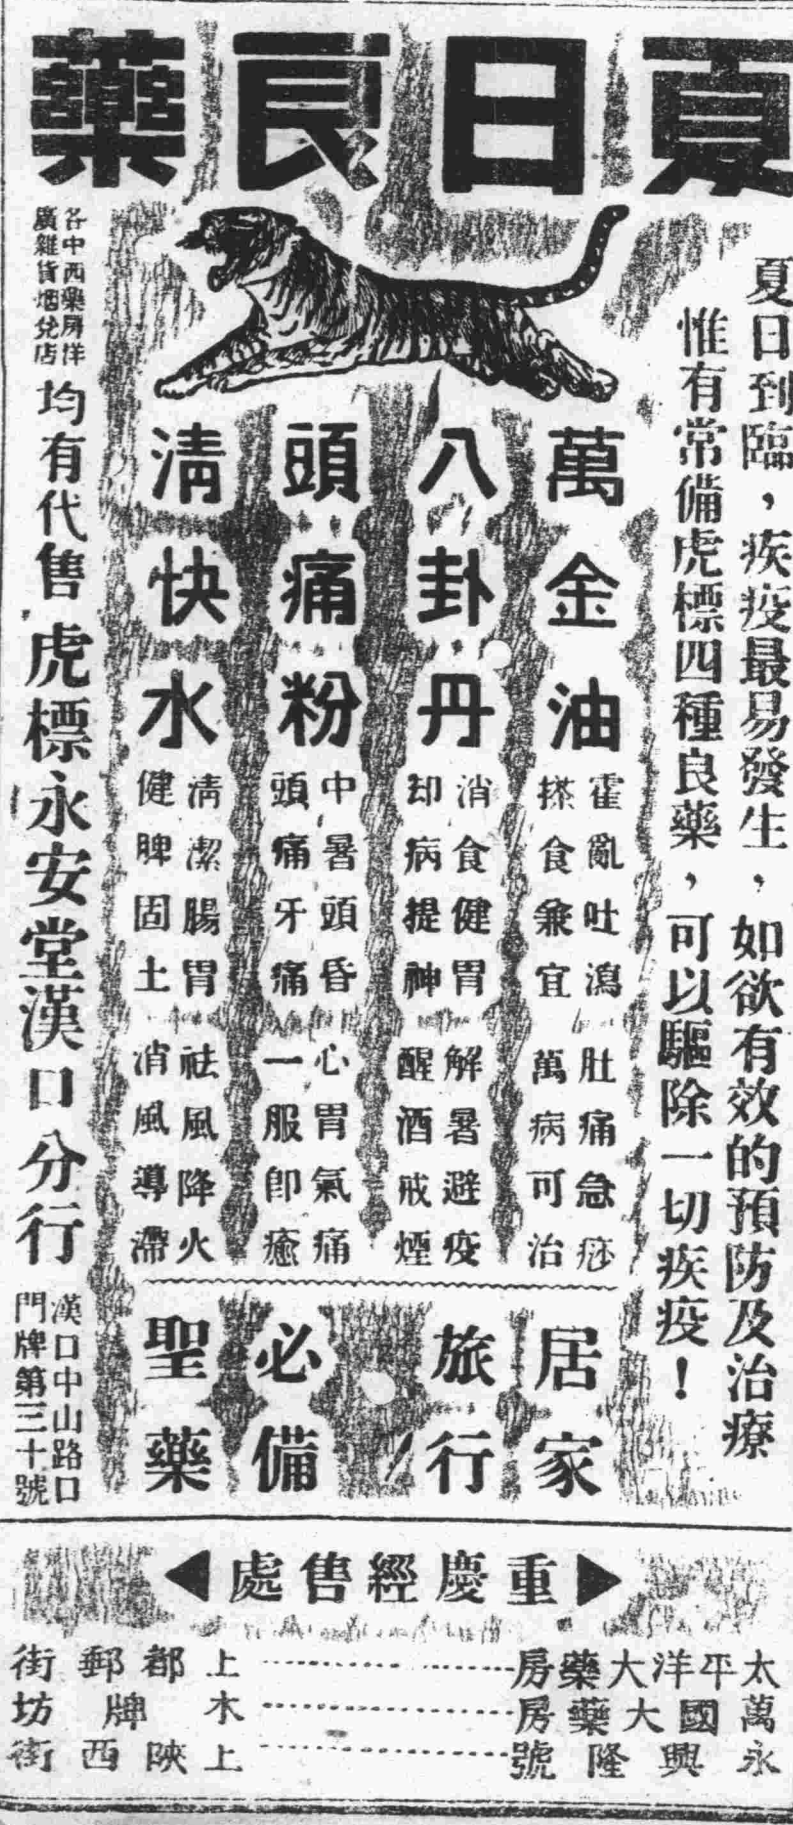 夏日良藥
夏日到臨，疾疫最易發生，如欲有效的預防及治療
惟有常備虎標四種良藥，可以驅除一切疾疫！
萬金油
霍亂吐瀉 肚痛急痧
搽食兼宜 萬病可治
八卦丹
消食健胃 解暑避疫
却病提神 醒酒戒煙
頭痛粉
中暑頭昏 心胃氣痛
頭痛牙痛 一服卽癒
淸快水
淸潔腸胃 祛風降火
健脾固土 消風導滯
居家
旅行
必備
聖藥
各中西藥房洋
廣雜貨烟兌店
均有代售
虎標永安堂漢口分行
漢口中山路口
門牌第三十號
重慶經售處
太平洋大藥房……上都郵街
萬國大藥房……木牌坊
永興隆號……上陝西街